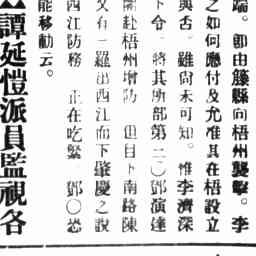 端。卽由籐縣向梧州襲擊。李
之如何應付及允准其在梧設立
與否。雖尙未可知。惟李濟深
下令。將其所部第二〇鄧演達
開赴梧州增防。但日下南路陳
又有一羅出西江而下肇慶之說
西江防務。正在吃緊。鄧〇恐
能移動云。
譚延愷派員監視各